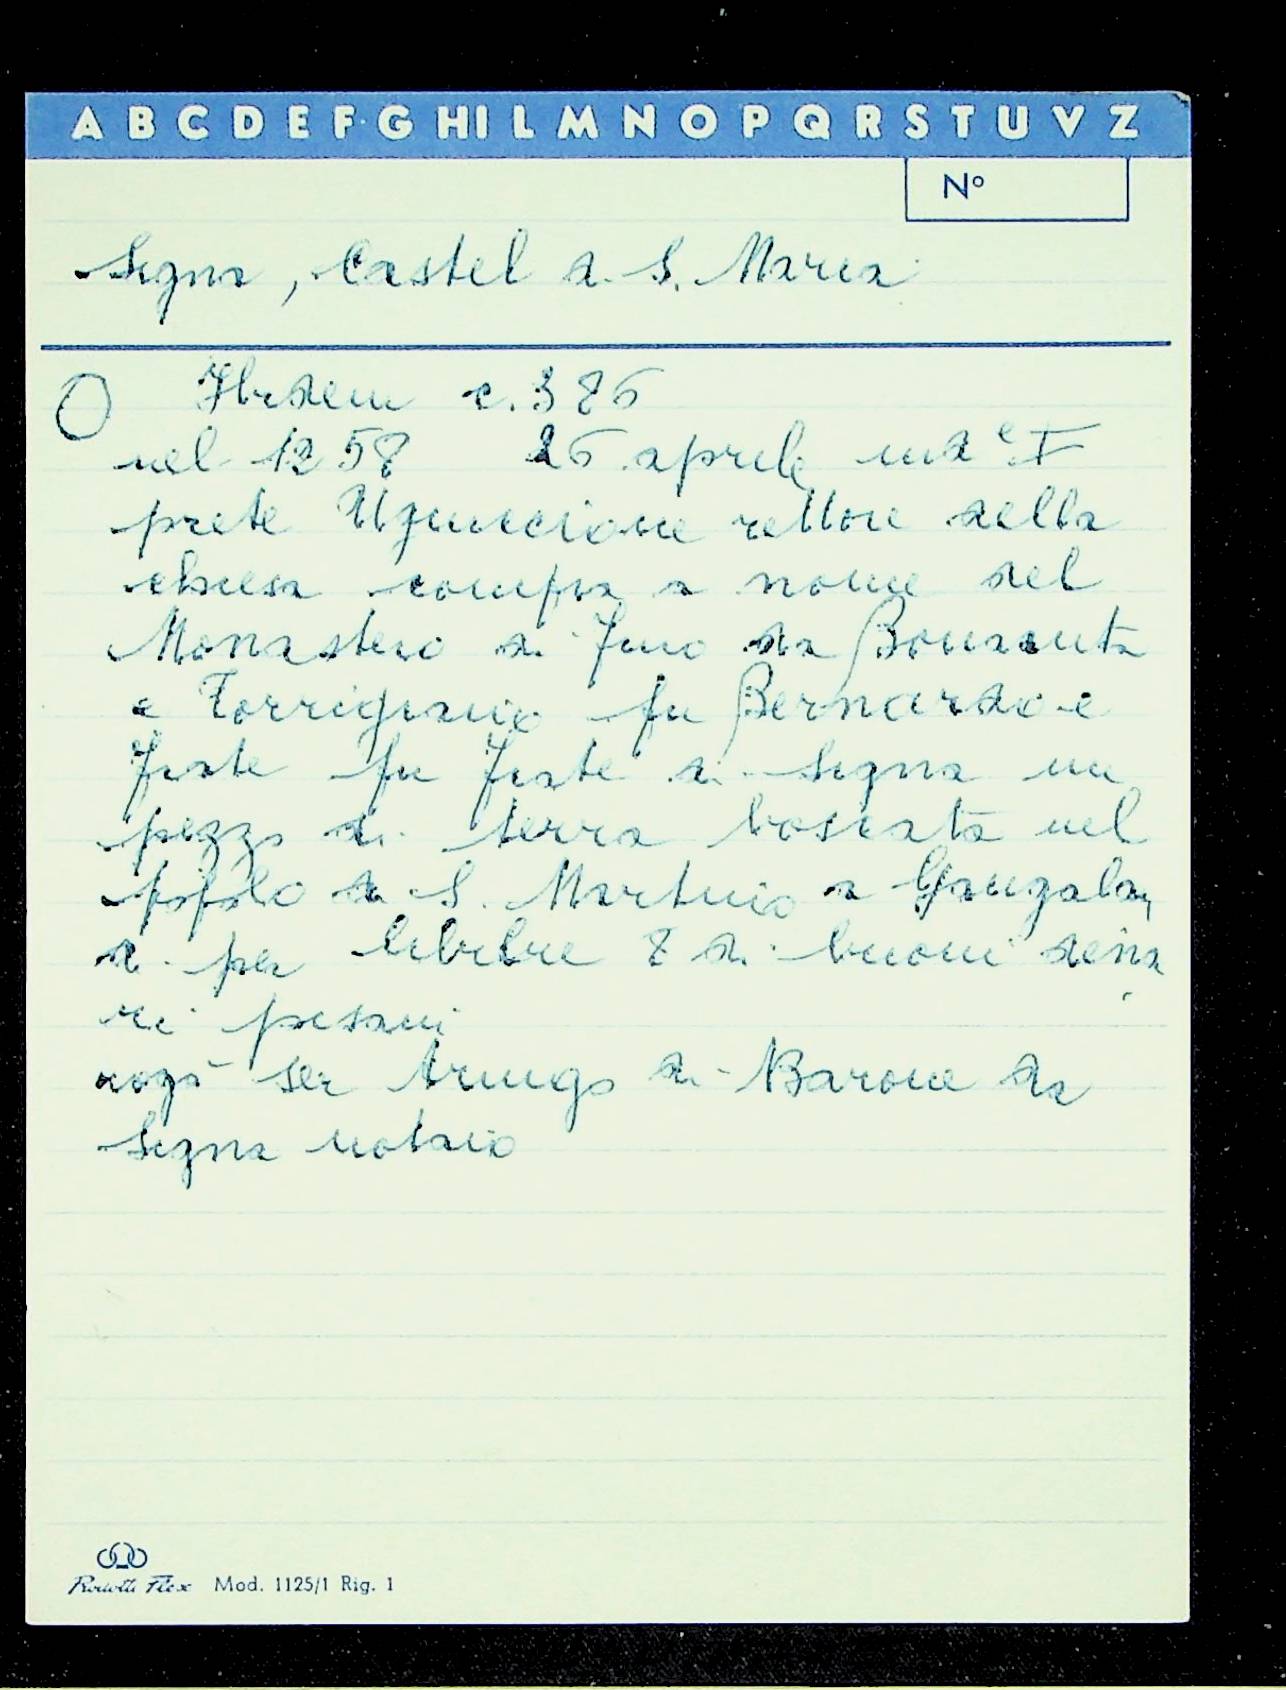 A B C D E F G H I L M N O P Q R S T U V Z
Nº
Signa, Castel di S. Maria
Ibidem c. 386
nel 1258 26 aprile
prete Uguccione rettore della
chiesa compra a nome del
Monastero di da Bonaiuta
e Torrigiano fu Bernardo e
fu di Signa un
pezzo di terra boscata nel
popolo di S. Martino a Gangalan
di per libbre 8 di buoni dena
ri pisani
rogò ser Arrigo di Barone da
Signa notaio
Mod. 1125/1 Rig. 1